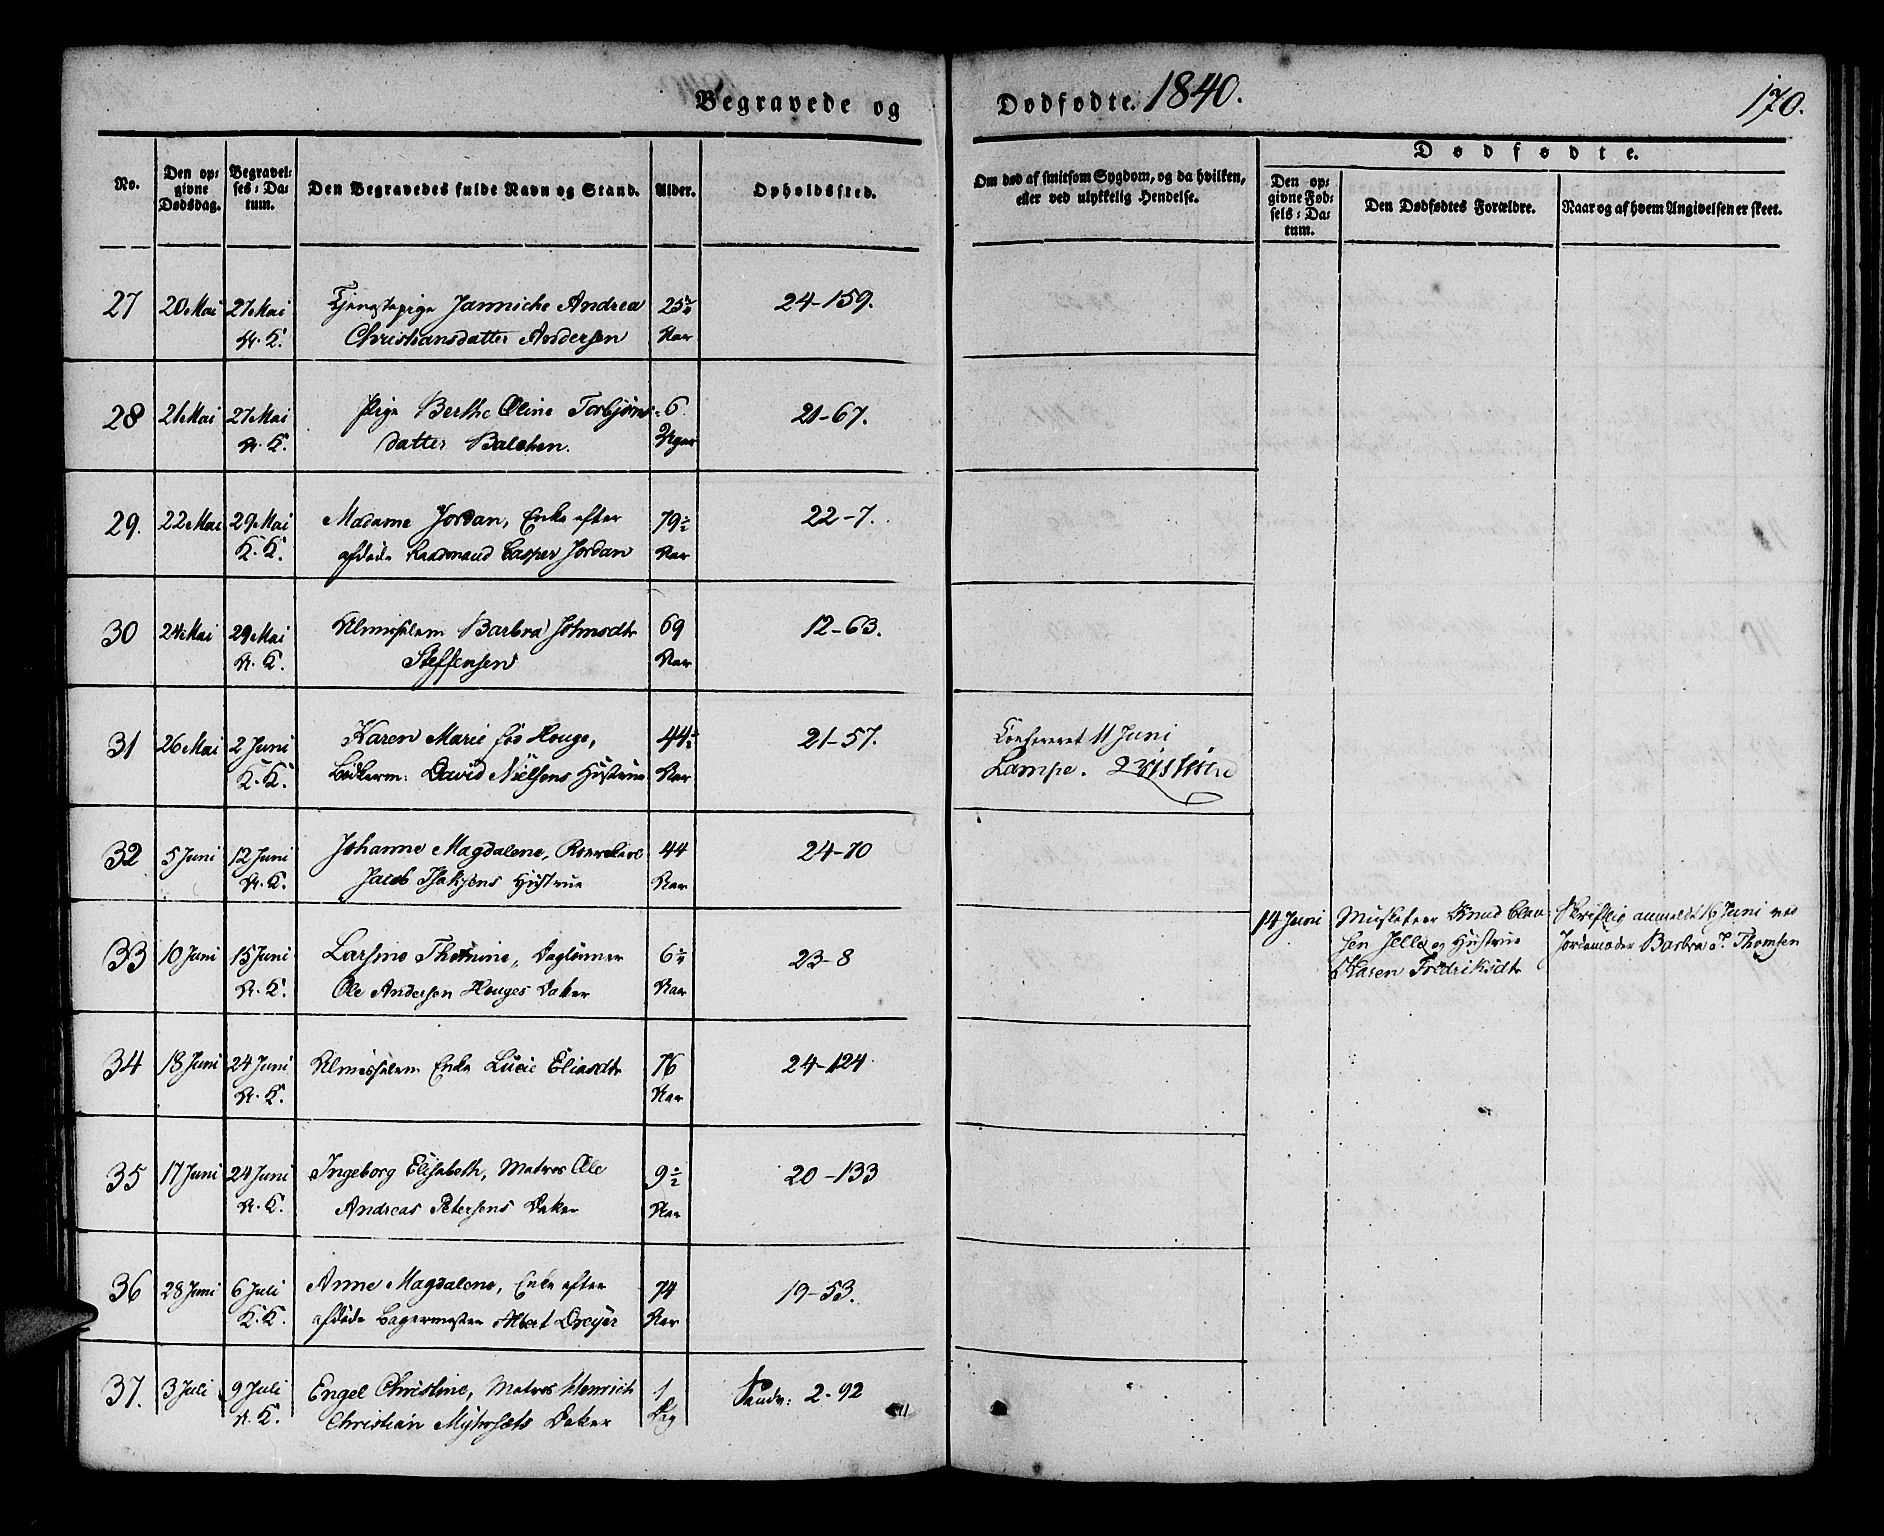 Begravede og Dødfødte. 1840. 170.
No.
Den opgivne Dødsdag.
Begravelses-Datum.
Den Begravedes fulde Navn og Stand.
Alder.
Opholdssted.
Om død af smitsom Sygdom, og da hvilken,
eller ved ulykkelig Hendelse.
Dødfødte.
Den opgivne Fødsels-Datum.
Den Dødfødtes Forældre.
Naar og af hvem Angivelsen er skeet.
27 20 Mai 27 Mai Tjenestepige Jannicke Andrea 25½ 24-159.
A. K. Christiansdatter Andersen Aar
28 21 Mai 27 Mai Pige Berthe Oline Torbjøns- 6 21-67.
A. K. datter Balchen. Uger
29. 22 Mai 29 Mai Madame Jordan, Enke efter 79½ 22-7.
K. K. afdøde Raadmand Casper Jordan Aar
30 24 Mai 29 Mai Almisselem Barbra Johnsdtr 69 12-63.
A. K. Steffensen Aar
31 26 Mai 2 Juni Karen Marie fød Houge, 44½ 21-57. Confereret 11 Juni
K. K. Bødkerm: David Nielsens Hustrue Aar Lampe.
32 5 Juni 12 Juni Johanne Magdalene, 44 24-70
A. K. Jacob Isaksens Hustrue Aar
14 Juni Musketeer Knud Clau- Skriftlig anmeldt 16 Juni ved
33 10 Juni 15 Juni Larsine Thomine, Daglønner 6½ 23-8 sen Jelle og Hustrue Jordemoder Barbra S. Thomsen
A. K. Ole Andersen Houges Datter Aar Karen Fredriksdtr
34 18 Juni 24 Juni Almisselem Enke Lucie Eliasdtr 76 24-124
A. K. Aar
35 17 Juni 24 Juni Ingeborg Elisabeth, Matros Ole 9½ 20-133
A. K. Andreas Petersens Datter Aar
36 28 Juni 6 Juli Anne Magdalene, Enke efter 74 19-53.
K. K. afdøde Bagermester Albert Dreyer Aar
37. 3 Juli 9 Juli Engel Christine, Matros Henrich 1 Sandv: 2-92
A. K. Christian Myhrsæts Datter Dag